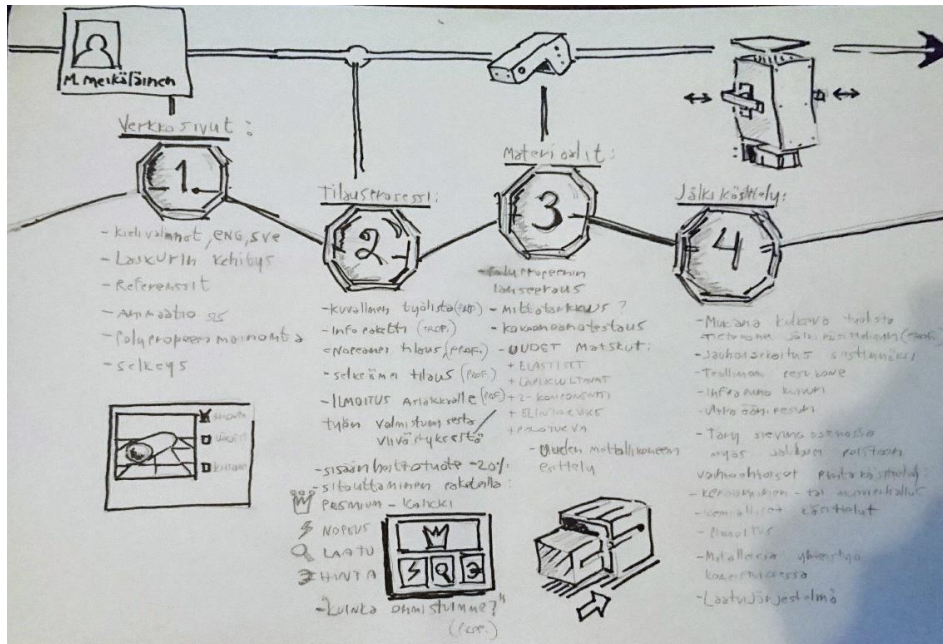 M. Meikäläinen
Verkkosivut:
1
- Kielivalinnat, ENG, SVE
- Laskurin kehitys
- Referenssit
- Animaatio
- Polypropeen mainonta
- selkeys
Tilausprosessi:
2
- Kuvallinen työlista (PROF.)
- Infopaketti (PROF.)
- Nopeampi tilaus (PROF.)
- selkeämpi tilaus (PROF.)
- ILMOITUS Asiakkaalle (PROF.)
työn valmistumisesta/
viivästyksestä
- sisäänheittotuote -20%
- sitouttaminen paketilla:
PREMIUM - Kaikki
NOPEUS
LAATU
HINTA
- "Kuinka onnistuimme?"
(PROF.)
Materiaalit:
3
- Polypropeenin
lanseeraus
- mittatarkkuus?
- kokoonpanotestaus
- UUDET Matskut:
+ ELASTISET
+ LÄPIKUULTAVAT
+ 2-KOMPONENTTI
+ ELINTARVIKE
- Uuden metallikoneen
esittely
Jälkikäsittely:
4
- Mukana kulkeva työlista
- Teollinen pesukone
- Infrapuna kuivuri
- Ultraäänipesuri
myös jalkojen poistoon
vaihtoehtoiset pintakäsittelyt:
- kemialliset käsittelyt
- Pinnoitus
- Metalleissa yhteistyö
- Laatujärjestelmä